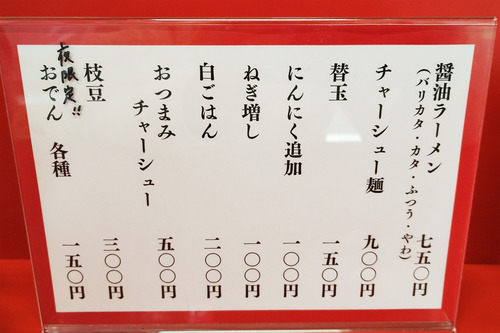 醤油ラーメン 七五〇円
(バリカタ・カタ・ふつう・やわ)
チャーシュー麺 九〇〇円
替玉 一五〇円
にんにく追加 一〇〇円
ねぎ増し 一〇〇円
白ごはん 二〇〇円
おつまみ
チャーシュー 五〇〇円
枝豆 三〇〇円
夜限定!!
おでん 各種 一五〇円